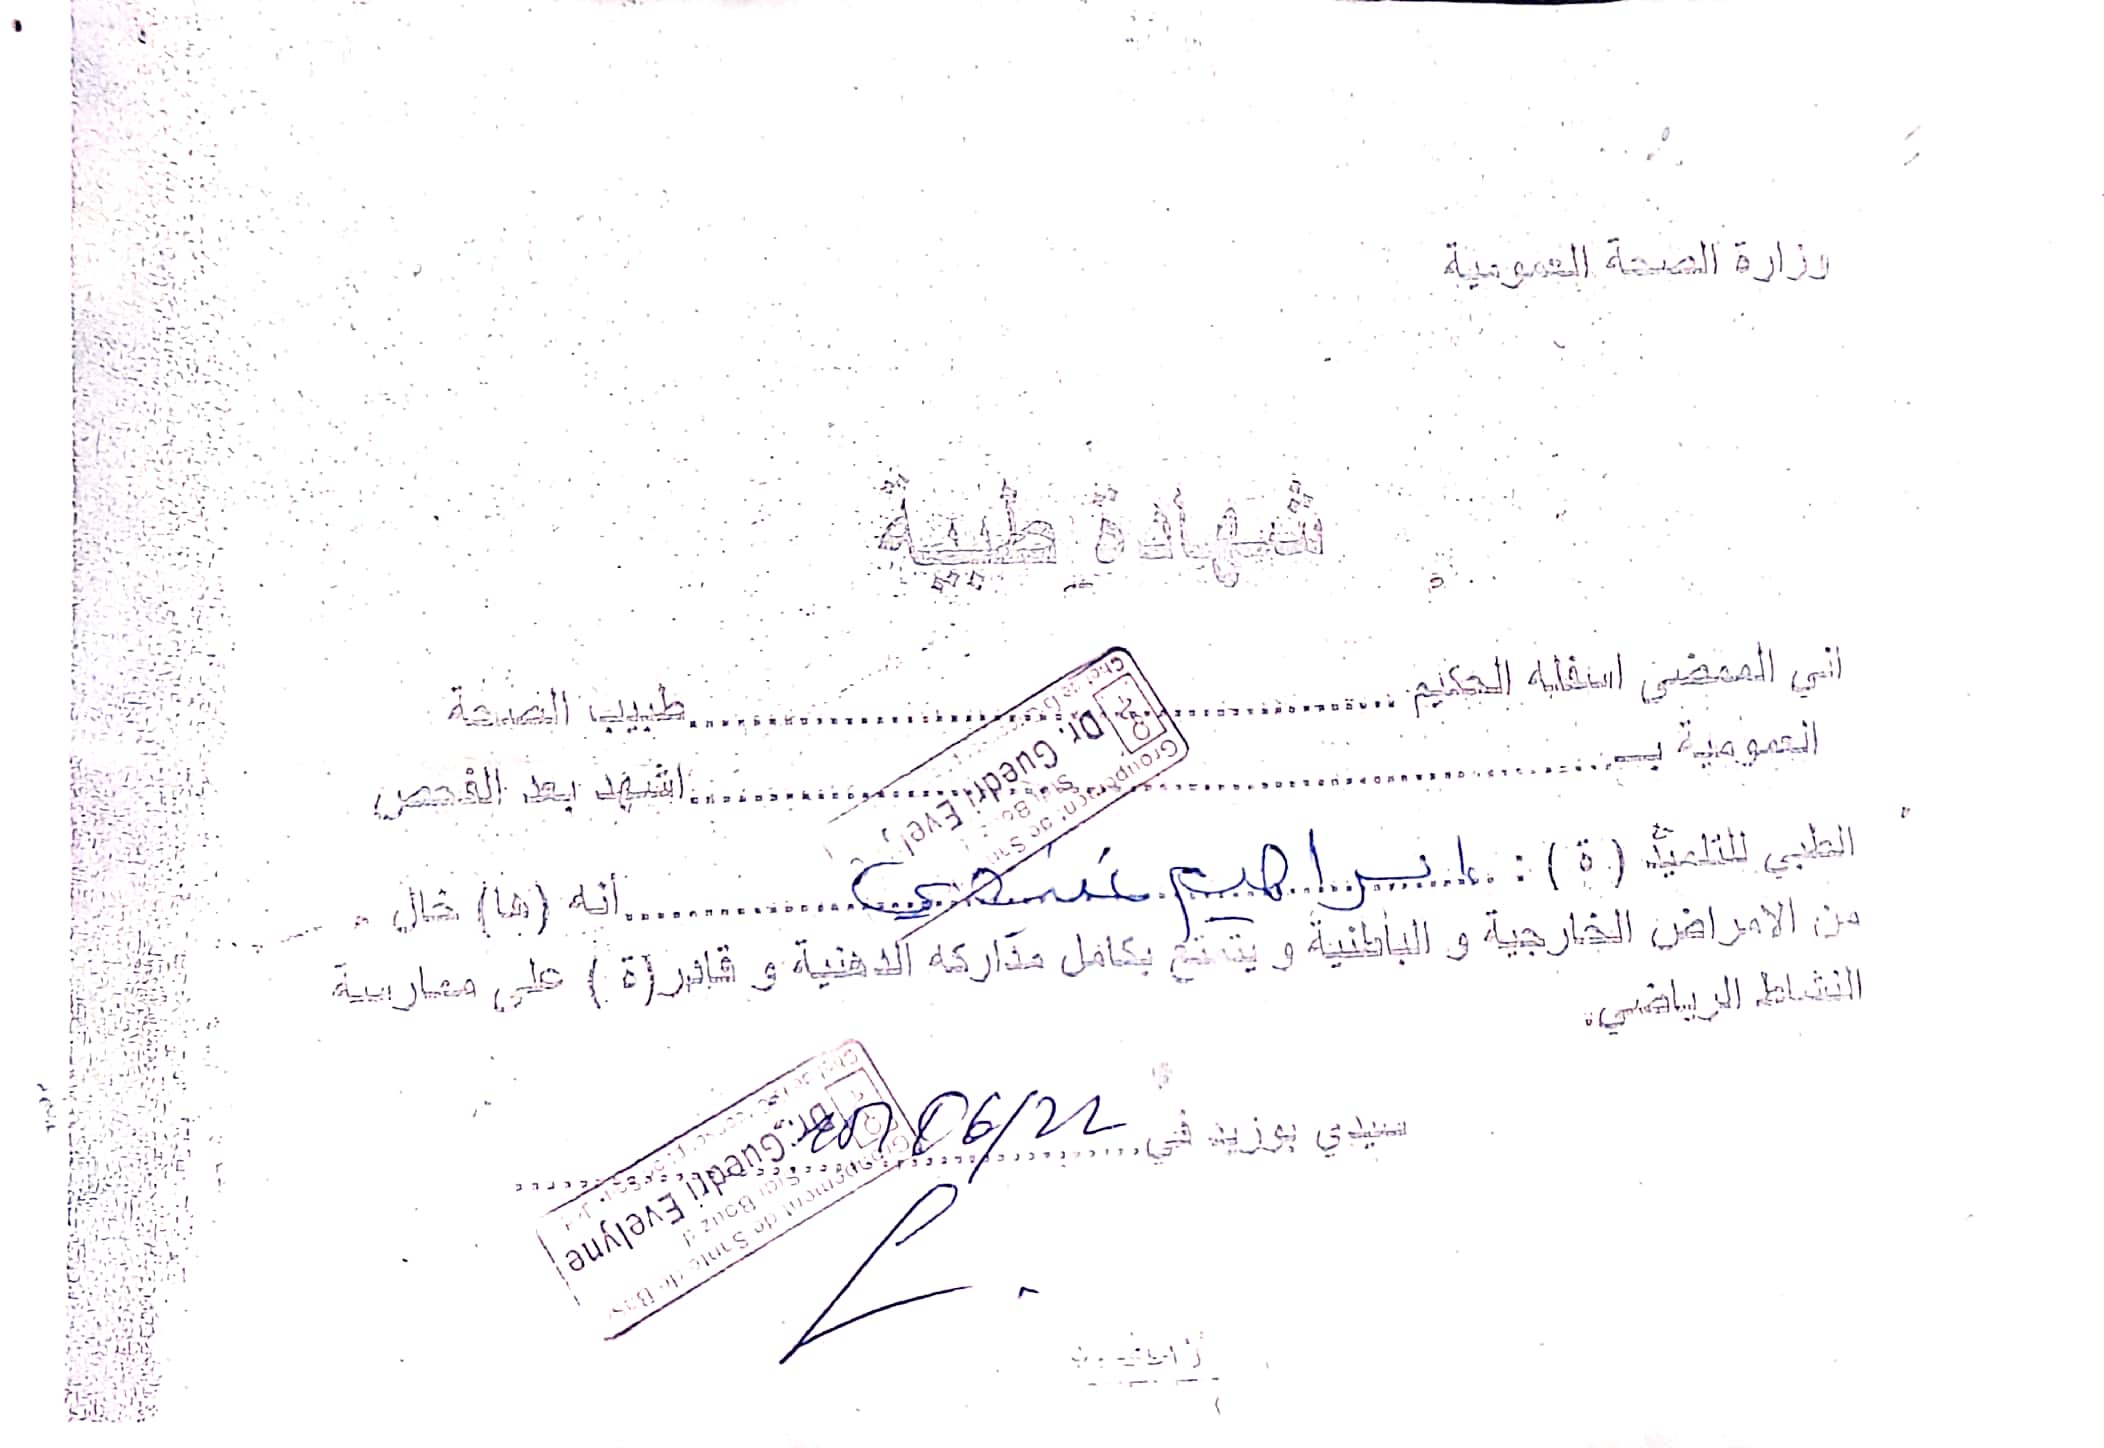 وزارة الصحة العمومية
شهادة طبية
اني الممضي اسفله الحكيم ........................ طبيب الصحة
العمومية بـ ........................ اشهد بعد الفحص
Dr. Guedri Evel
الطبي للتلميذ ( ة ) : ابراهيم ........ أنه (ها) خال
من الامراض الخارجية و الباطنية و يتمتع بكامل مداركه الذهنية و قادر(ة ) على ممارسة
النشاط الرياضي.
سيدي بوزيد في ........ 06/22
Dr. Guedri Evelyne
Groupement de Sante de Base
Sidi Bouzid
الامضاء